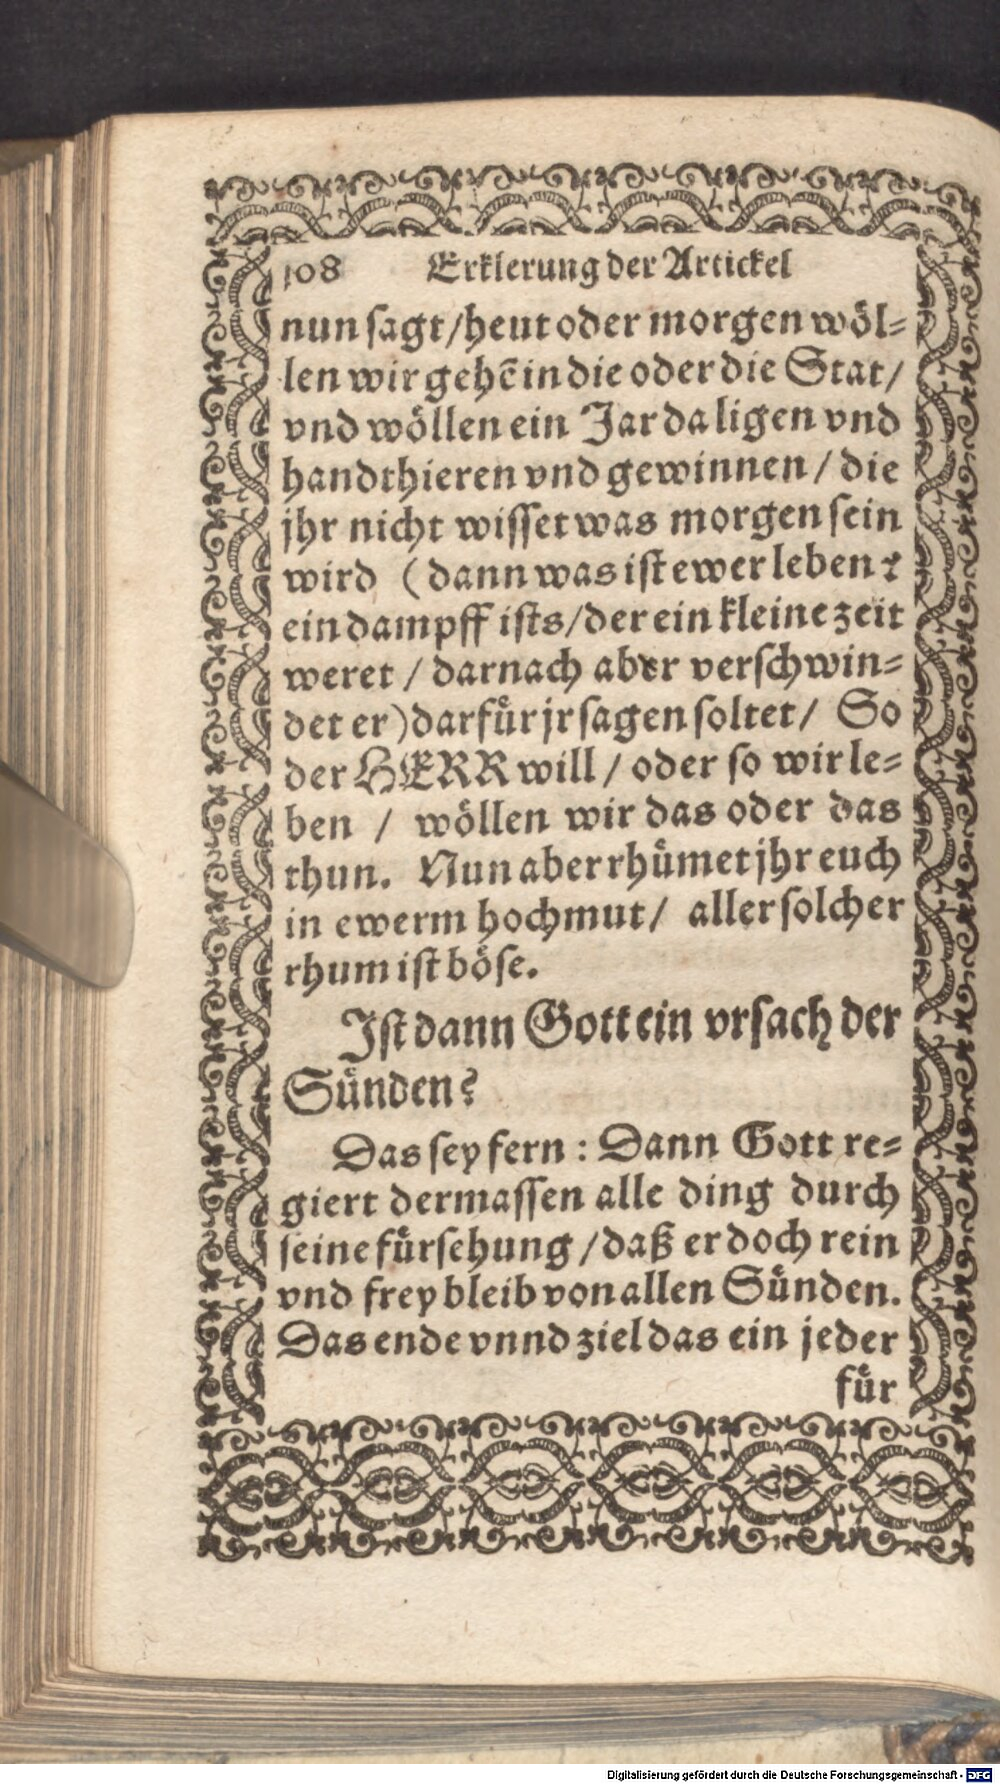 108 Erklerung der Artickel
nun sagt/heut oder morgen wöl⸗
len wir gehē in die oder die Stat/
vnd wöllen ein Jar da ligen vnd
handthieren vnd gewinnen / die
jhr nicht wisset was morgen sein
wird (dann was ist ewer leben?
ein dampff ists/der ein kleine zeit
weret / darnach aber verschwin⸗
det er) darfür jr sagen soltet/ So
der HERR will / oder so wir le⸗
ben / wöllen wir das oder das
thun. Nun aber rhümet jhr euch
in ewerm hochmut/ aller solcher
rhum ist böse.
Ist dann Gott ein vrsach der
Sünden?
Das sey fern : Dann Gott re⸗
giert dermassen alle ding durch
seine fürsehung /daß er doch rein
vnd frey bleib von allen Sünden.
Das ende vnnd ziel das ein jeder
für
Digitalisierung gefördert durch die Deutsche Forschungsgemeinschaft - DFG